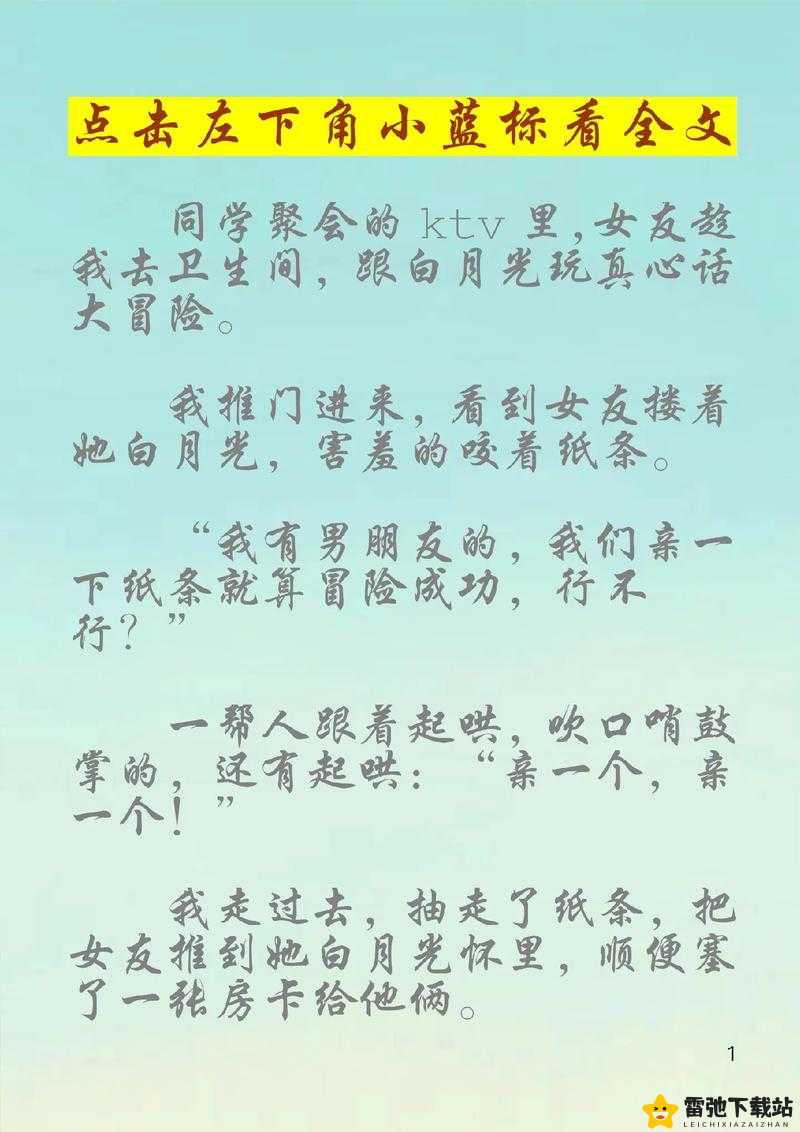 点击左下角小蓝标看全文
同学聚会的ktv里,女友趁
我去卫生间,跟白月光玩真心话
大冒险。
我推门进来,看到女友搂着
她白月光,害羞的咬着纸条。
“我有男朋友的,我们亲一
下纸条就算冒险成功,行不
行?”
一帮人跟着起哄,吹口哨鼓
掌的,还有起哄:“亲一个,亲
一个!”
我走过去,抽走了纸条,把
女友推到她白月光怀里,顺便塞
了一张房卡给他俩。
1
雷弛下载站
LEICHIXIAZAIZHAN